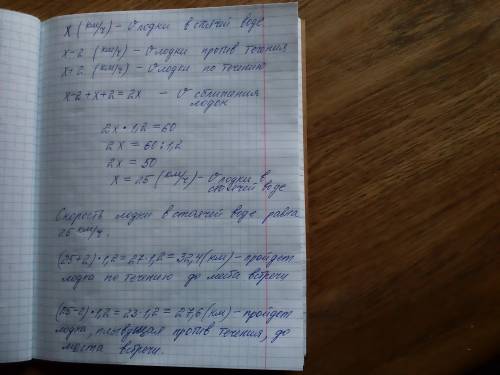 x (км/ч) – υ лодки в стоячей воде
x-2 (км/ч) – υ лодки против течения
x+2 (км/ч) – υ лодки по течению
x-2+x+2=2x – υ сближения
лодок
2x·1,2=60
2x=60:1,2
2x=50
x=25 (км/ч) – υ лодки в
стоячей воде
Скорость лодки в стоячей воде равна
25 км/ч.
(25+2)·1,2=27·1,2=32,4(км) – пройдет
лодка по течению до места встречи
(25-2)·1,2=23·1,2=27,6(км) – пройдет
лодка, плывущая против течения, до
места встречи.